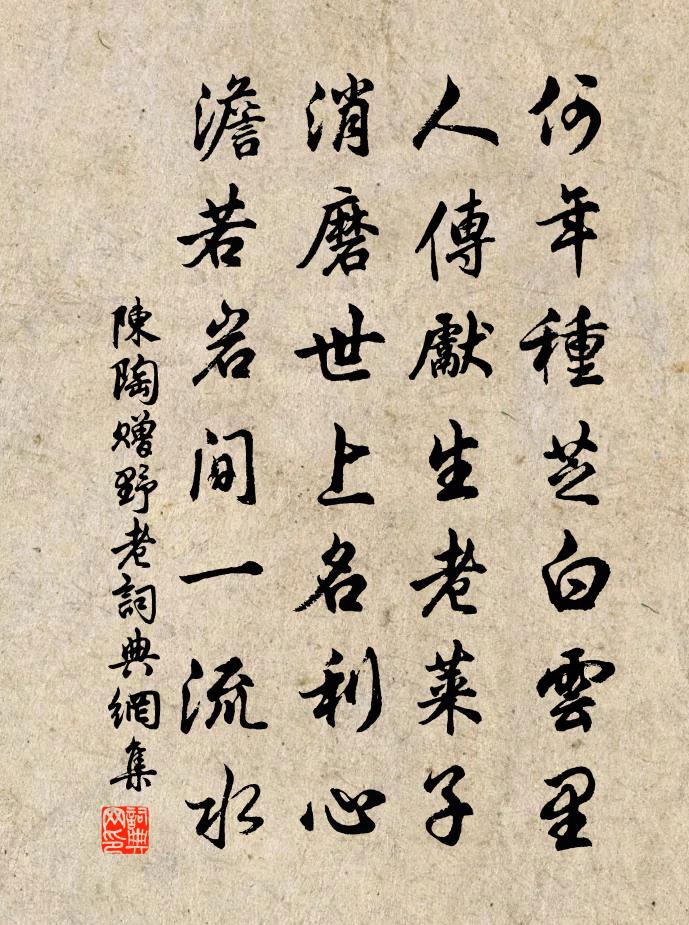 何年種芝白雲里
人傳獻生老萊子
消磨世上名利心
澹若岩間一流水
陳陶贈野老詞典網集
詞典网印